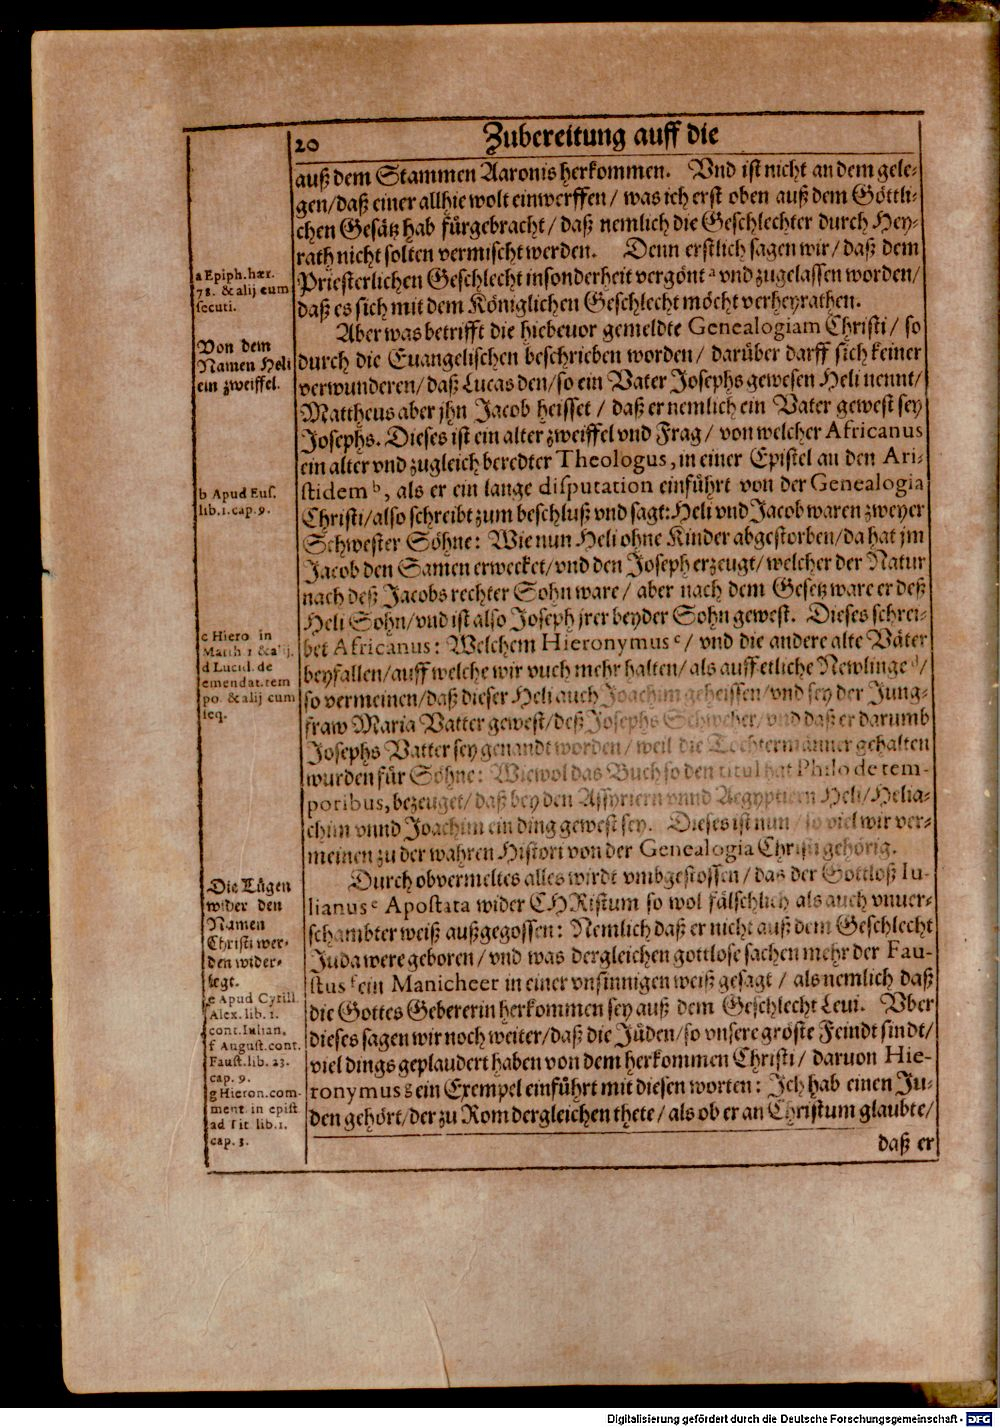 20
Zubereitung auff die
auß dem Stammen Aaronis herkommen. Vnd ist nicht an dem gele-
gen/daß einer allhie wolt einwerffen / was ich erst oben auß dem Göttli-
chen Gesätz hab fürgebracht / daß nemlich die Geschlechter durch Hey-
rath nicht solten vermischt werden. Denn erstlich sagen wir / daß dem
Priesterlichen Geschlecht insonderheit vergönt a vnd zugelassen worden/
daß es sich mit dem Königlichen Geschlecht möcht verheyrathen.
a Epiph. hær.
78. & alij cum
secuti.
Aber was betrifft die hiebeuor gemeldte Genealogiam Christi / so
durch die Euangelischen beschrieben worden / darüber darff sich keiner
verwunderen/daß Lucas den/so ein Vater Josephs gewesen Heli nennt/
Mattheus aber jhn Jacob heisset / daß er nemlich ein Vater gewest sey
Josephs. Dieses ist ein alter zweiffel vnd Frag / von welcher Africanus
ein alter vnd zugleich beredter Theologus, in einer Epistel an den Ari-
stidem b, als er ein lange disputation einführt von der Genealogia
Christi/also schreibt zum beschluß vnd sagt: Heli vnd Jacob waren zweyer
Schwester Söhne: Wie nun Heli ohne Kinder abgestorben/da hat jm
Jacob den Samen erwecket/vnd den Joseph erzeugt/welcher der Natur
nach deß Jacobs rechter Sohn ware / aber nach dem Gesetz ware er deß
Heli Sohn/vnd ist also Joseph jrer beyder Sohn gewest. Dieses schrei-
bet Africanus: Welchem Hieronymus c/ vnd die andere alte Väter
beyfallen/auff welche wir vuch mehr halten/als auff etliche Newlinge d/
so vermeinen/daß dieser Heli auch Joachim geheissen/vnd sey der Jung-
fraw Maria Vatter gewest/deß Josephs Schweher/vnd daß er darumb
Josephs Vatter sey genandt worden / weil die Tochtermänner gehalten
wurden für Söhne: Wiewol das Buch so den titul hat Philo de tem-
poribus, bezeuget/ daß bey den Assyriern vnnd Aegyptiern Heli/Helia-
chim vnnd Joachim ein ding gewest sey. Dieses ist nun / so viel wir ver-
meinen zu der wahren Histori von der Genealogia Christi gehörig.
Von dem
Namen Heli
ein zweiffel.
b Apud Eus.
lib. 1. cap. 9.
c Hiero in
Matth 1 & alij.
d Lucid. de
emendat. tem
po. & alij cum
seq.
Durch obvermeltes alles wirdt vmbgestossen / das der Gottloß Iu-
lianus e Apostata wider CHRistum so wol fälschlich als auch vnuer-
schambter weiß außgegossen: Nemlich daß er nicht auß dem Geschlecht
Juda were geboren / vnd was dergleichen gottlose sachen mehr der Fau-
stus f ein Manicheer in einer vnsinnigen weiß gesagt / als nemlich daß
die Gottes Gebererin herkommen sey auß dem Geschlecht Leui. Vber
dieses sagen wir noch weiter/daß die Jüden/so vnsere gröste Feindt sindt/
viel dings geplaudert haben von dem herkommen Christi / daruon Hie-
ronymus g ein Exempel einführt mit diesen worten: Ich hab einen Ju-
den gehört/der zu Rom dergleichen thete / als ob er an Christum glaubte/
Die Lügen
wider den
Namen
Christi wer-
den wider-
legt.
e Apud Cyrill.
Alex. lib. 1.
cont. Iulian.
f August. cont.
Faust. lib. 23.
cap. 9.
g Hieron. com-
ment. in epist
ad Tit lib. 1.
cap. 3.
daß er
Digitalisierung gefördert durch die Deutsche Forschungsgemeinschaft - DFG